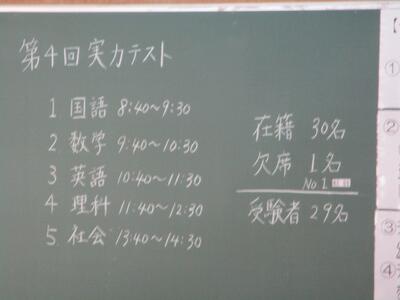 第4回実力テスト
1 国語 8:40〜9:30
2 数学 9:40〜10:30
3 英語 10:40〜11:30
4 理科 11:40〜12:30
5 社会 13:40〜14:30
在籍 30名
欠席 1名
No 1
受験者 29名
①
②
③
④